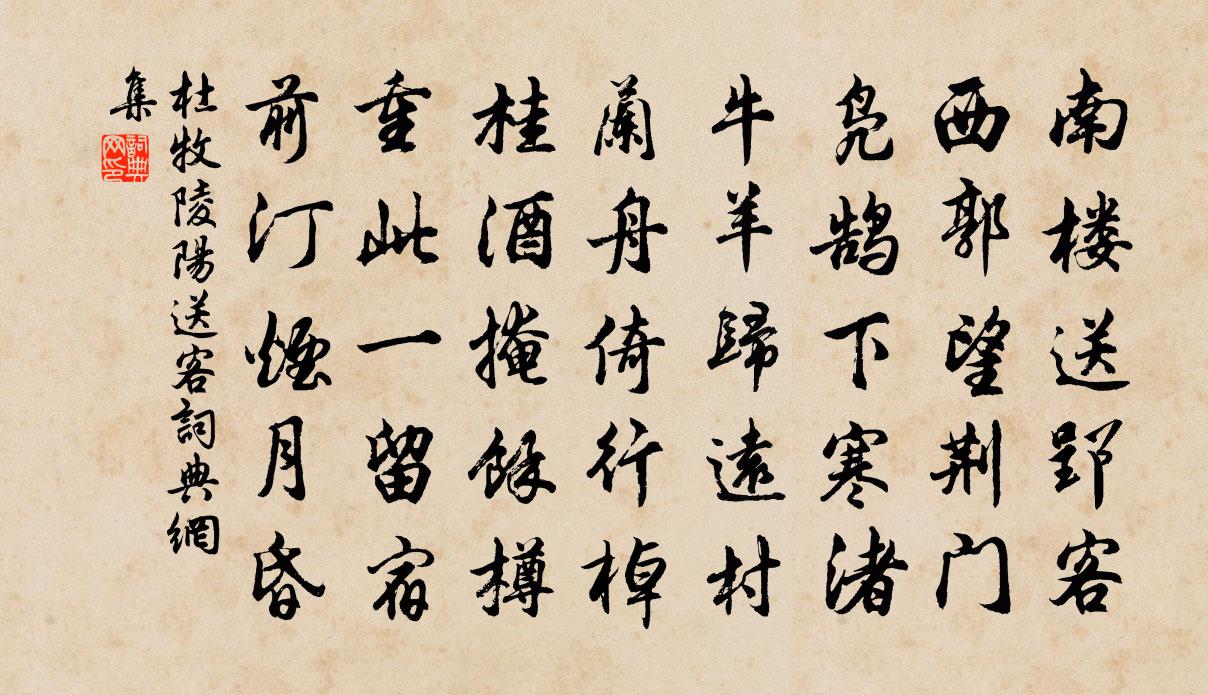 南楼送郢客
西郭望荆门
凫鹄下寒渚
牛羊歸遠村
蘭舟倚行棹
桂酒掩餘樽
重此一留宿
前汀煙月昏
杜牧陵陽送客詞典網
集
詞典网印